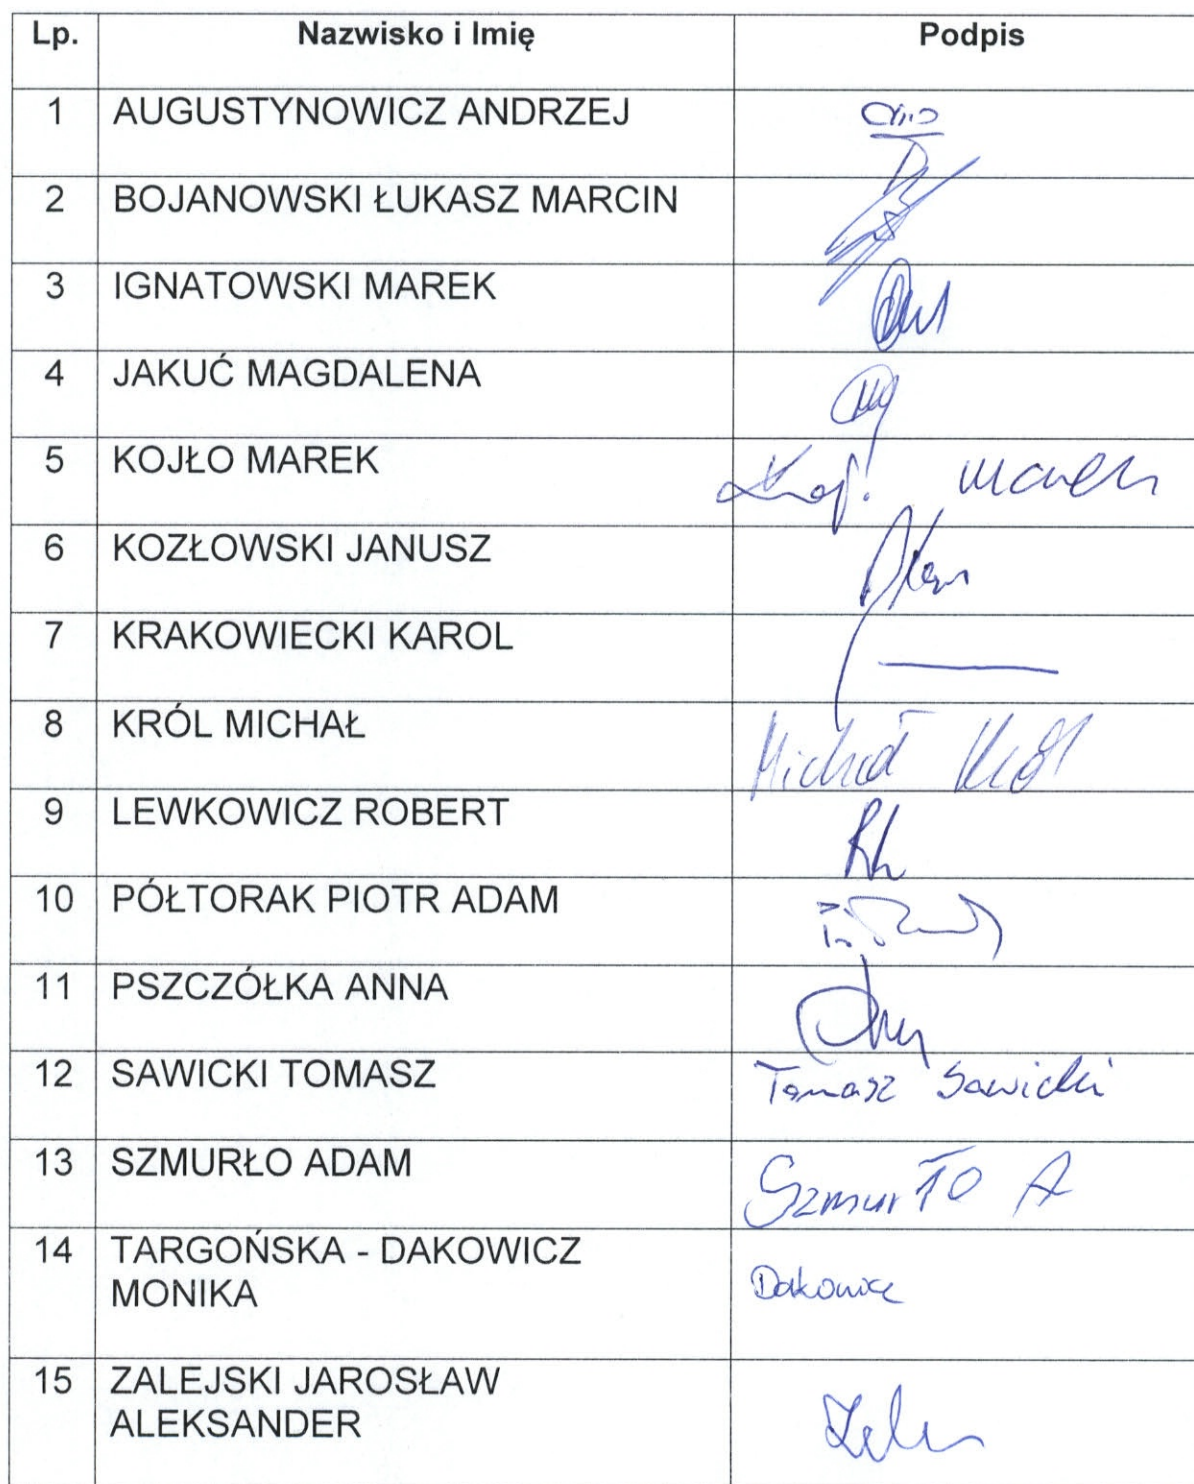 Lp. Nazwisko i Imię Podpis
1 AUGUSTYNOWICZ ANDRZEJ
2 BOJANOWSKI ŁUKASZ MARCIN
3 IGNATOWSKI MAREK
4 JAKUĆ MAGDALENA
5 KOJŁO MAREK Marek
6 KOZŁOWSKI JANUSZ
7 KRAKOWIECKI KAROL
8 KRÓL MICHAŁ Michał Król
9 LEWKOWICZ ROBERT
10 PÓŁTORAK PIOTR ADAM
11 PSZCZÓŁKA ANNA
12 SAWICKI TOMASZ Tomasz Sawicki
13 SZMURŁO ADAM Szmurło A
14 TARGOŃSKA - DAKOWICZ
MONIKA
Dakowicz
15 ZALEJSKI JAROSŁAW
ALEKSANDER